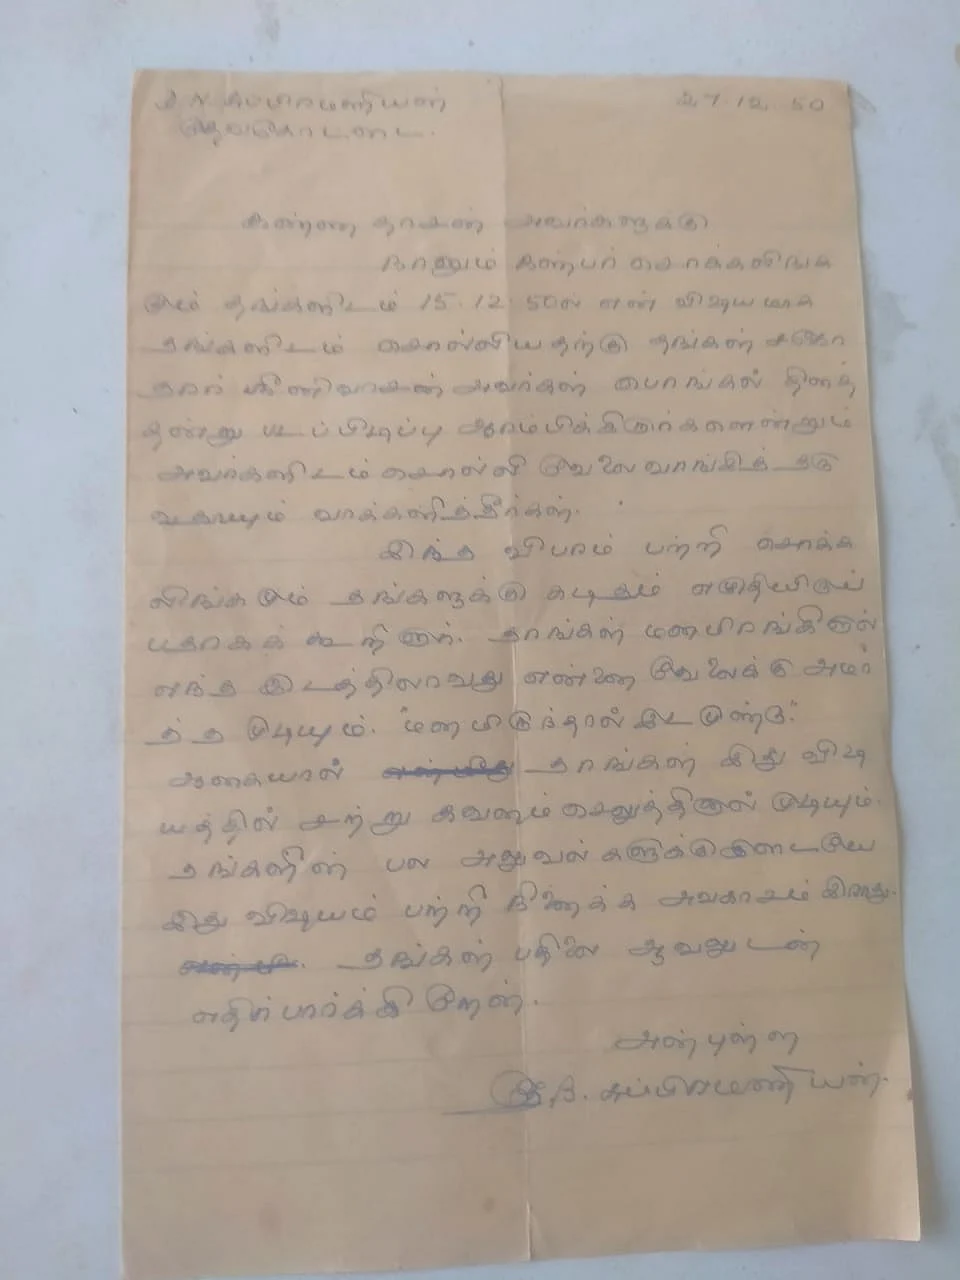 சுப்பிரமணியன் 27.12.50
தேவகோட்டை.
கண்ணதாசன் அவர்களுக்கு
நானும் நண்பர் சொக்கலிங்க
மும் தங்களிடம் 15.12.50ல் என் விஷயமாக
தங்களிடம் சொல்லியதற்கு தங்கள் சகோ
தரர் ஸ்ரீனிவாசன் அவர்கள் பொங்கல் தினத்
தன்று படப்பிடிப்பு ஆரம்பிக்கிறார்களென்றும்
அவர்களிடம் சொல்லி வேலை வாங்கித் தரு
வதாயும் வாக்களித்தீர்கள்.
இந்த விபரம் பற்றி சொக்க
லிங்கமும் தங்களுக்கு கடிதம் எழுதியிருப்
பதாகக் கூறினார். தாங்கள் மனமிரங்கினால்
எந்த இடத்திலாவது என்னை வேலைக்கு அமர்
த்த முடியும். "மனமிருந்தால் இடமுண்டு."
ஆகையால் தாங்கள் இது விட
யத்தில் சற்று கவனம் செலுத்தினால் முடியும்.
தங்களின் பல அலுவல்களுக்குமிடையே
இது விஷயம் பற்றி நினைக்க அவகாசம் இராது.
தங்கள் பதிலை ஆவலுடன்
எதிர்பார்க்கிறேன்.
அன்புள்ள
சுப்பிரமணியன்.